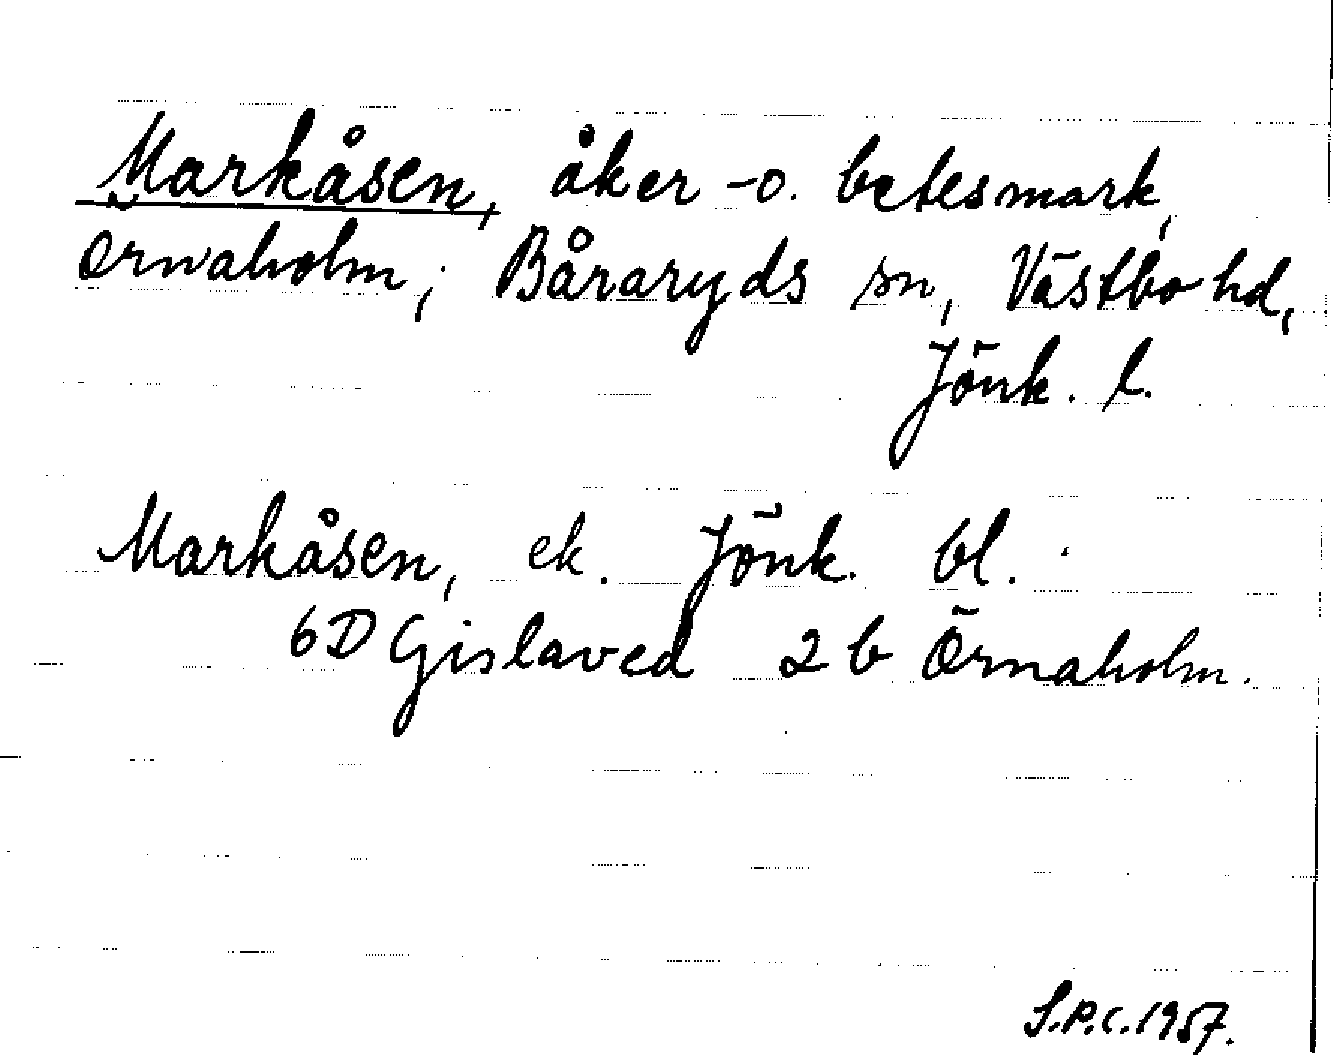 Markåsen, åker -o. betesmark,
Örnaholm, Båraryds sn, Västbo hd,
Jönk. l.
Markåsen, ek. Jönk. bl.
6D Gislaved 2b Örnaholm.
S.P.C. 1957.